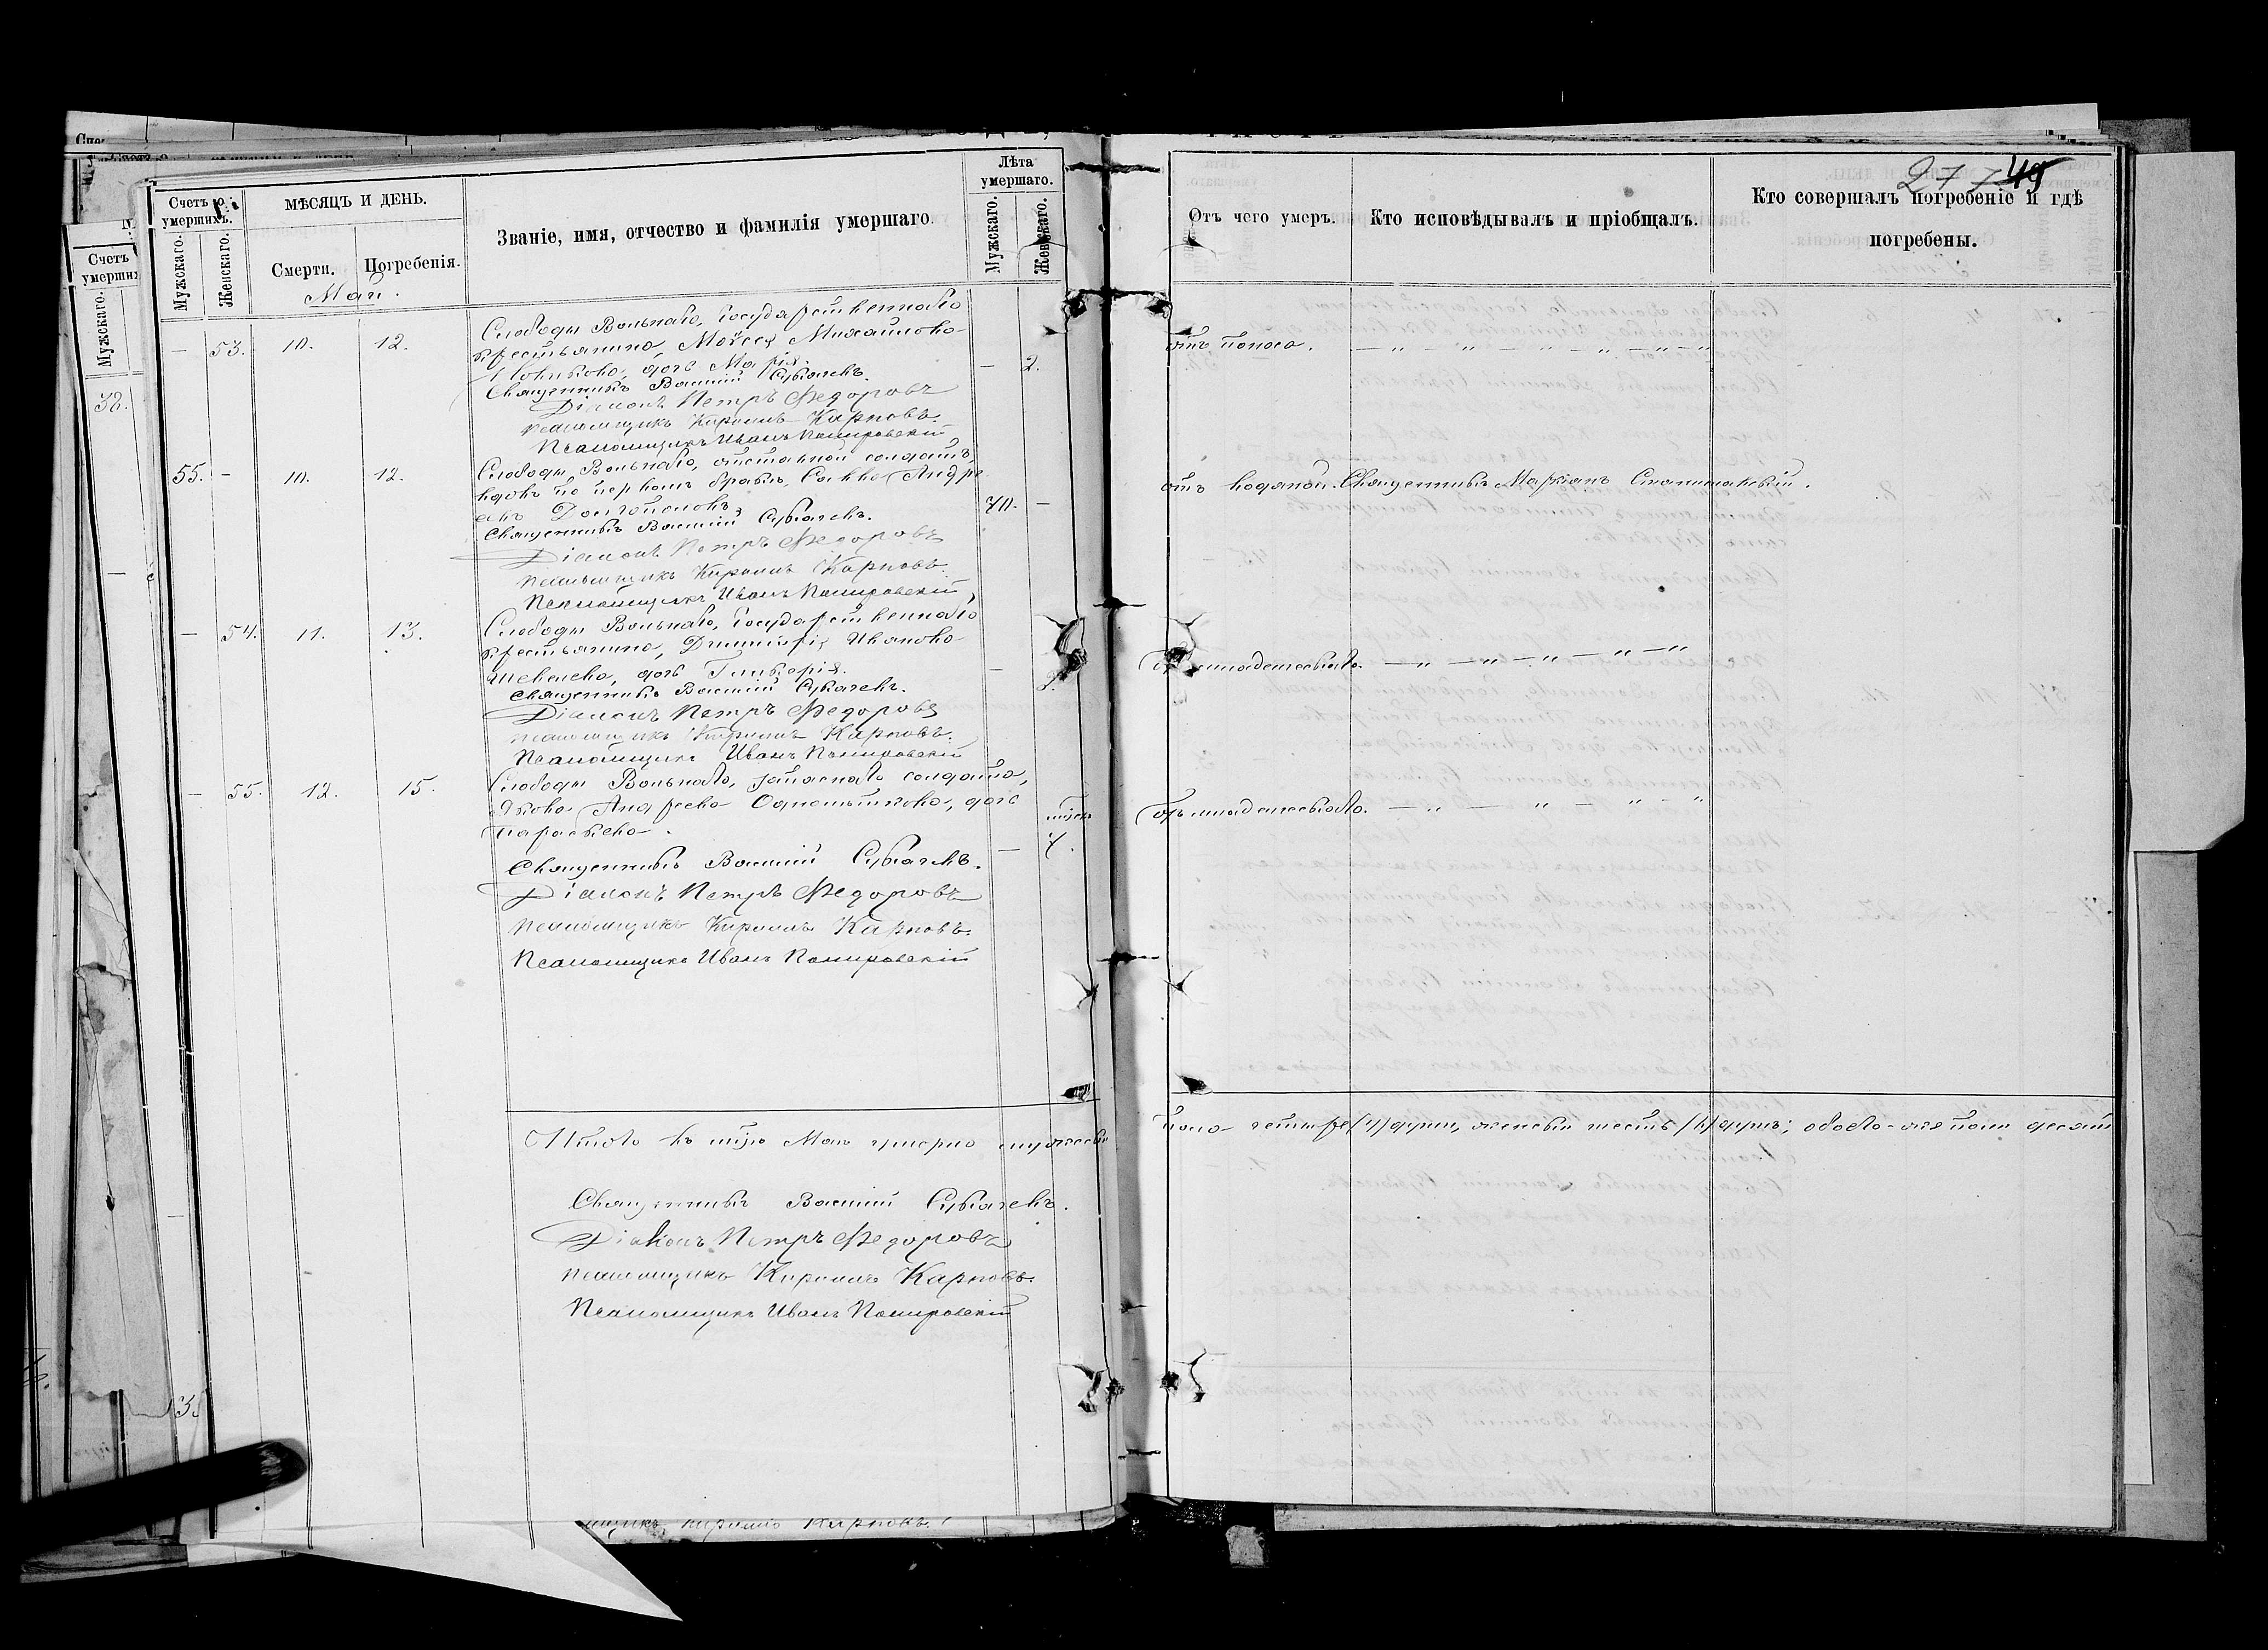 Счетъ умершихъ.
МѢСЯЦЪ И ДЕНЬ.
Званіе, имя, отчество и фамилія умершаго.
Лѣта умершаго.
Мужскаго.
Женскаго.
Смерти.
Погребенія.
Мужскаго.
Женскаго.
Май.
— 53. 10. 12.
Слободы Вольнаго, Государственнаго
крестьянина, Моисея Михайлова
дочь Марія.
— 2.
Священникъ Василій
Діаконъ Петръ Федоровъ
псаломщикъ Кириллъ Карповъ.
Псаломщикъ Иванъ
55. — 10. 12.
Слободы Вольнаго, отставной солдатъ,
вдовъ по первомъ бракѣ, Савва Андре
евъ Долгополовъ
70. —
Священникъ Василій
Діаконъ Петръ Федоровъ
псаломщикъ Кириллъ Карповъ.
Псаломщикъ Иванъ
— 54. 11. 13.
Слободы Вольнаго, Государственнаго
крестьянина, Димитрія Иванова
дочь Гликерія.
—
Священникъ Василій
Діаконъ Петръ Федоровъ
псаломщикъ Кириллъ Карповъ.
Псаломщикъ Иванъ
— 55. 12. 15.
Слободы Вольнаго, запаснаго солдата,
Якова Андреева дочь
Параскева.
— 7.
Священникъ Василій
Діаконъ Петръ Федоровъ
псаломщикъ Кириллъ Карповъ.
Псаломщикъ Иванъ
Итого въ Маѣ умерло мужеска
Священникъ Василій
Діаконъ Петръ Федоровъ
псаломщикъ Кириллъ Карповъ.
Псаломщикъ Иванъ
277
49
Отъ чего умеръ.
Кто исповѣдывалъ и пріобщалъ.
Кто совершалъ погребеніе и гдѣ
погребены.
отъ поноса. — „ — „ — „ — „ — „ — „
отъ водяной. Священникъ Маркіанъ
младенческаго. — „ — „ — „ — „ — „
отъ младенческаго. — „ — „ — „ — „
пола четыре (4) души, женска шесть (6) душъ; обоего-же пола десять
Счетъ
Мужскаго.
38.